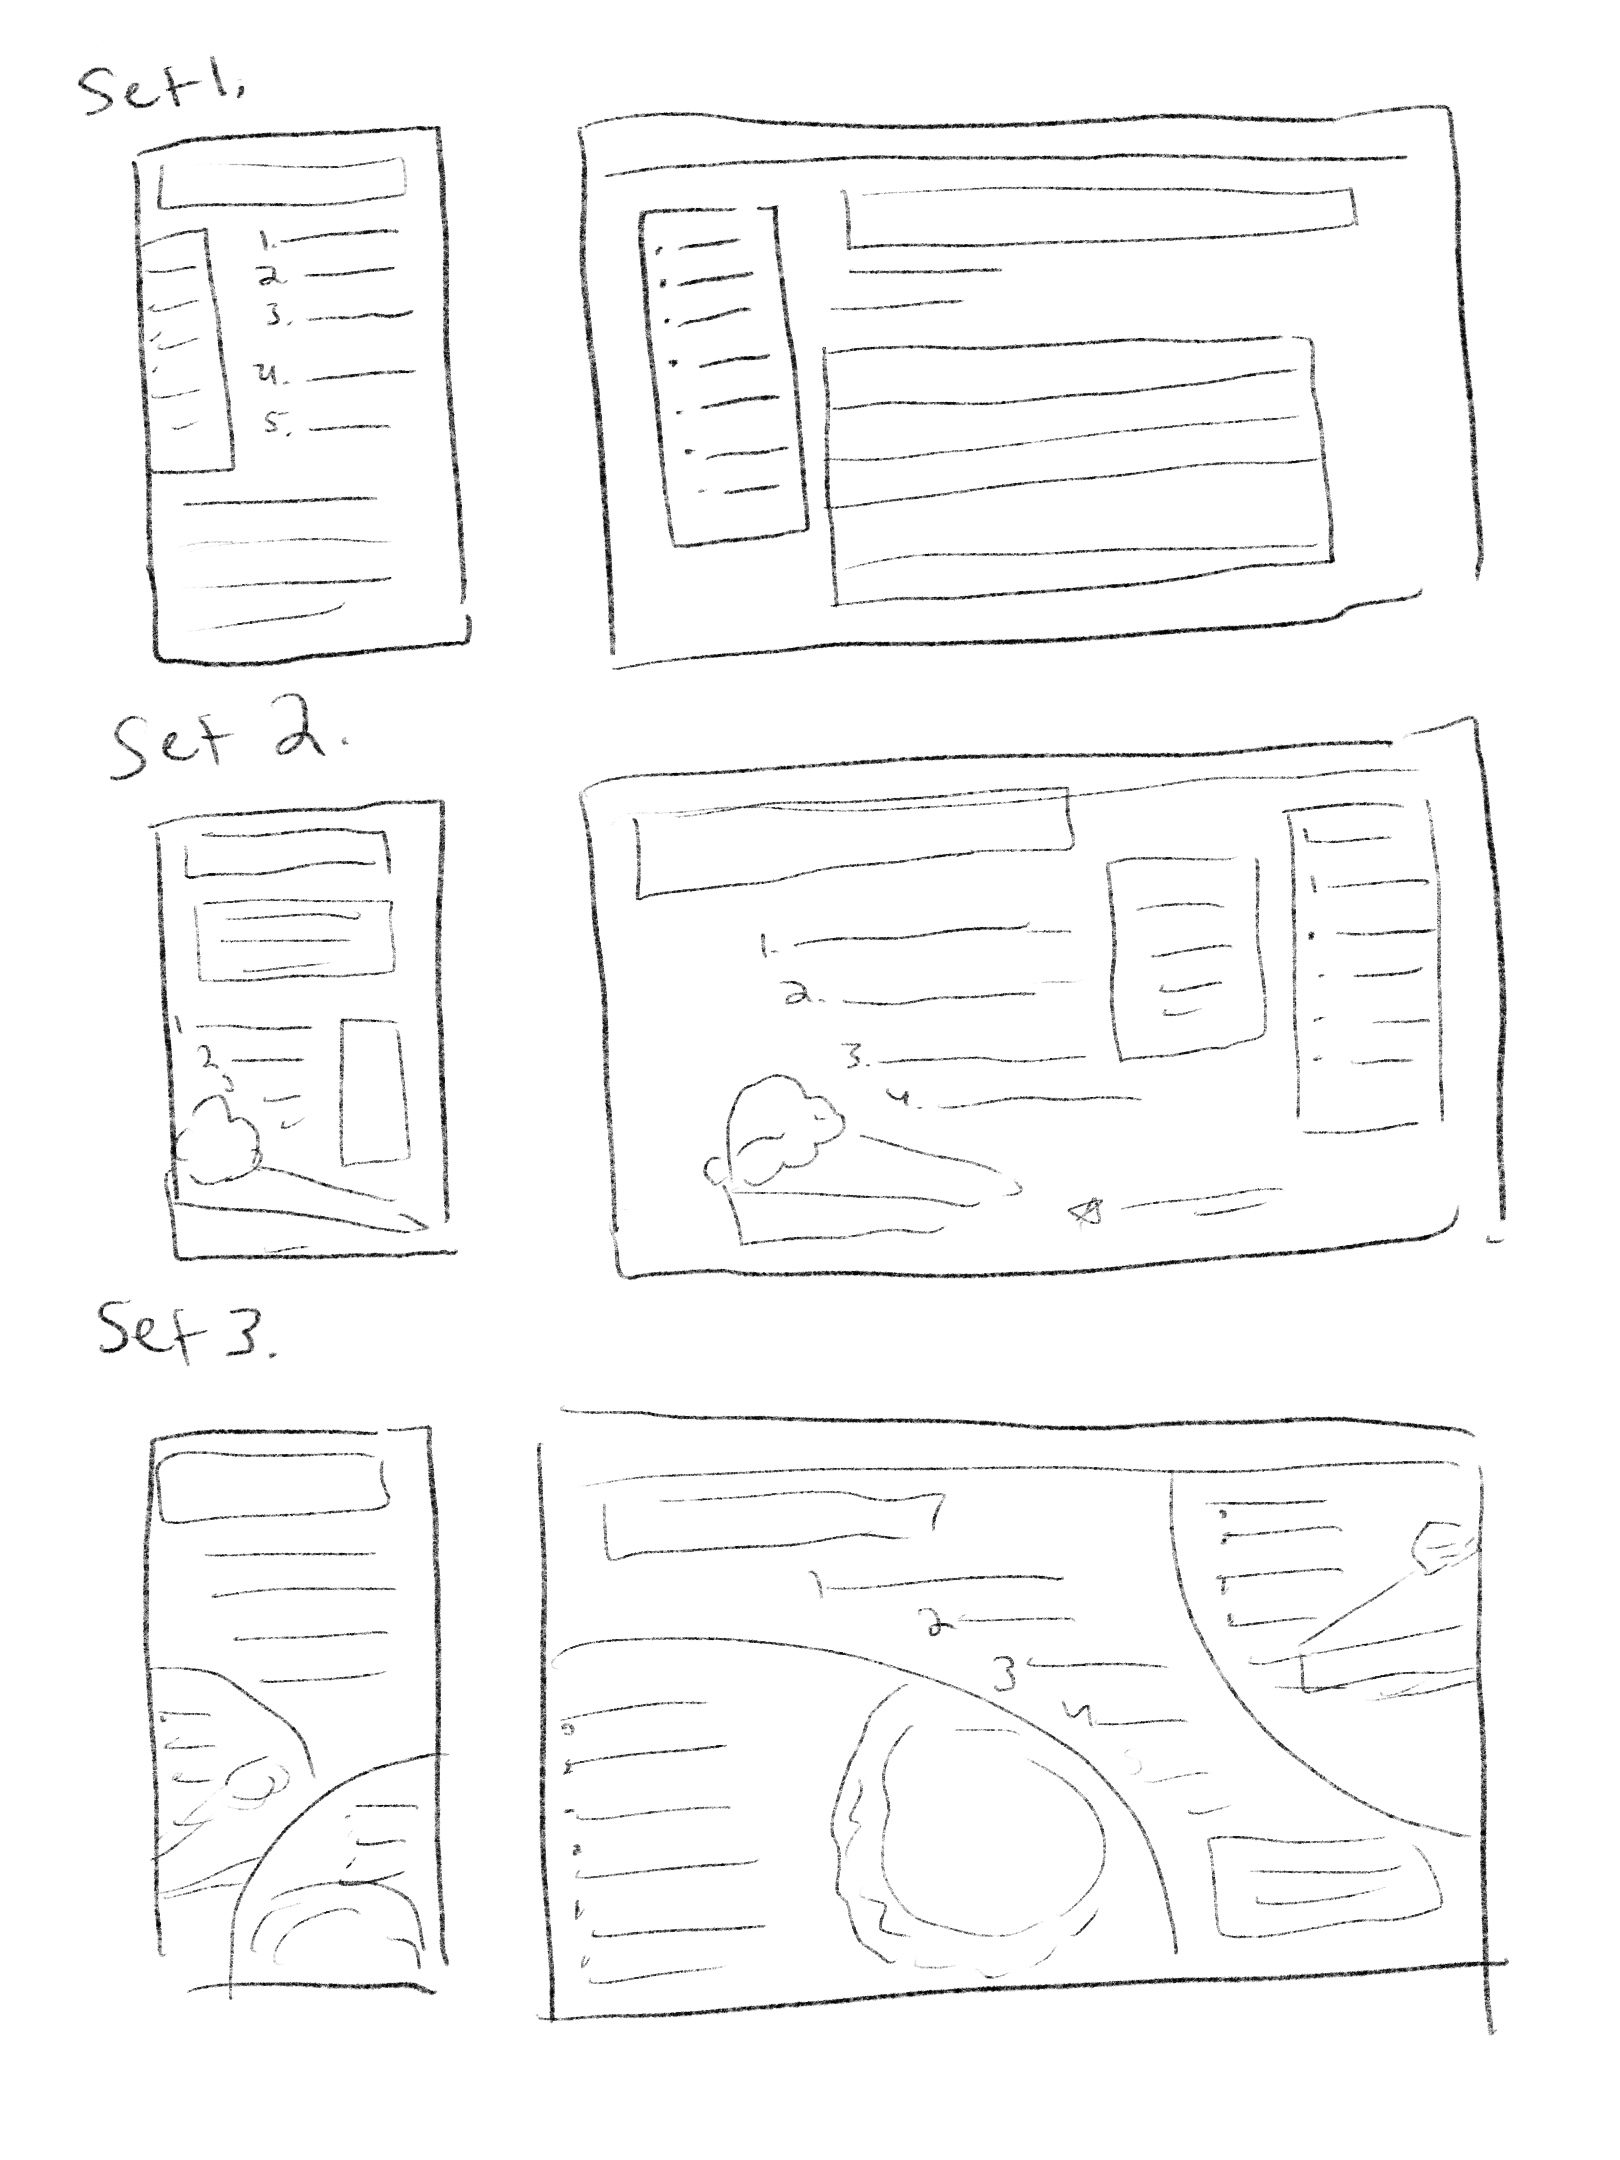 Set 1.
1.
2
3.
4.
5.
Set 2.
1
2.
3
1.
2.
3.
4.
Set 3.
1
2
3
4
5